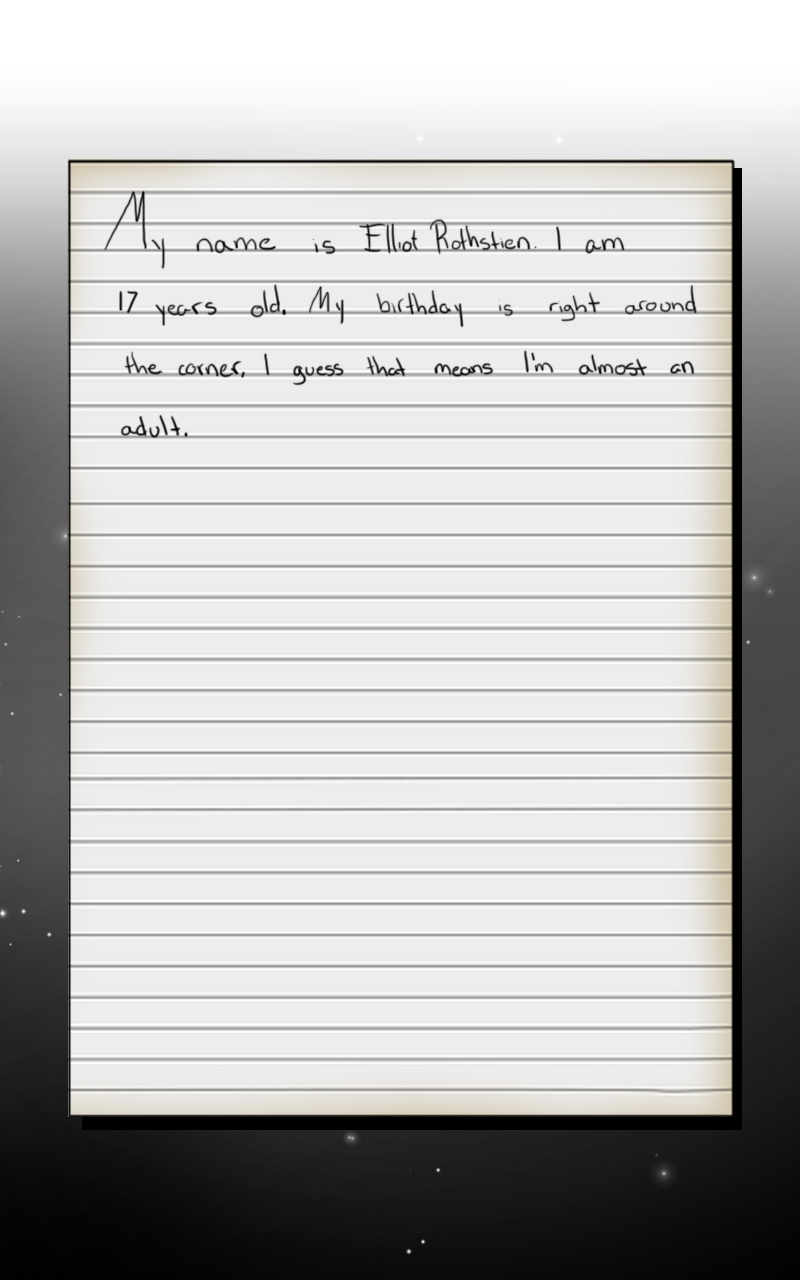 My name is Elliot Rothstien. I am
17 years old. My birthday is right around
the corner, I guess that means I'm almost an
adult.